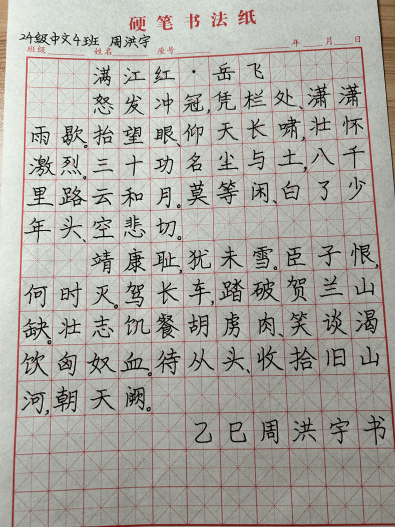 硬笔书法纸
24级中文4班 周洪宇
班级 姓名 座号 年 月 日
满江红·岳飞
怒发冲冠,凭栏处、潇潇
雨歇。抬望眼、仰天长啸,壮怀
激烈。三十功名尘与土,八千
里路云和月。莫等闲、白了少
年头、空悲切。
靖康耻,犹未雪。臣子恨,
何时灭。驾长车,踏破贺兰山
缺。壮志饥餐胡虏肉、笑谈渴
饮匈奴血。待从头、收拾旧山
河,朝天阙。
乙巳周洪宇书